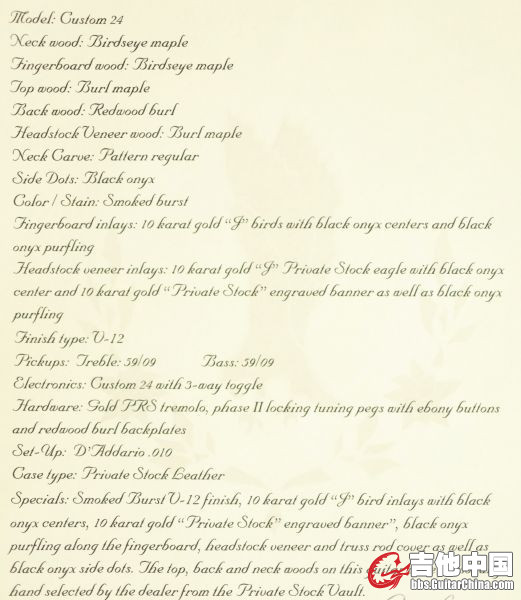 Model: Custom 24
Neck wood: Birdseye maple
Fingerboard wood: Birdseye maple
Top wood: Burl maple
Back wood: Redwood burl
Headstock Veneer wood: Burl maple
Neck Carve: Pattern regular
Side Dots: Black onyx
Color / Stain: Smoked burst
Fingerboard inlays: 10 karat gold “J” birds with black onyx centers and black
onyx purfling
Headstock veneer inlays: 10 karat gold “J” Private Stock eagle with black onyx
center and 10 karat gold “Private Stock” engraved banner as well as black onyx
purfling
Finish type: V-12
Pickups: Treble: 59/09 Bass: 59/09
Electronics: Custom 24 with 3-way toggle
Hardware: Gold PRS tremolo, phase II locking tuning pegs with ebony buttons
and redwood burl backplates
Set-Up: D’Addario .010
Case type: Private Stock Leather
Specials: Smoked Burst V-12 finish, 10 karat gold “J” bird inlays with black
onyx centers, 10 karat gold “Private Stock” engraved banner”, black onyx
purfling along the fingerboard, headstock veneer and truss rod cover as well as
black onyx side dots. The top, back and neck woods on this
hand selected by the dealer from the Private Stock Vault.
吉他中国
bbs.GuitarChina.com